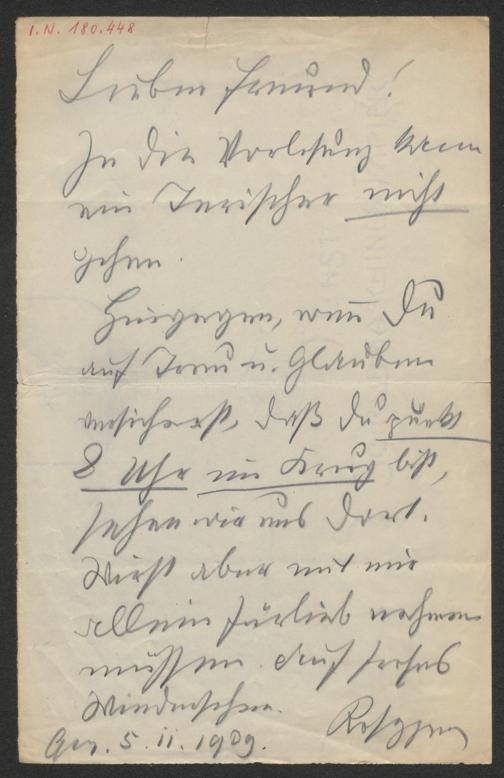 I.N. 180.448
Lieber Freund!
In die Vorlesung kann
ein Steirischer nicht
gehen.
Hingegen, wenn Du
auf Treu u. Glauben
versicherst, daß Du punkt
8 Uhr im Krug bist,
sehen wir uns dort.
Wirst aber mit mir
allein fürlieb nehmen
müssen. Auf frohes
Wiedersehen.
Rosegger
Graz. 5. 11. 1909.